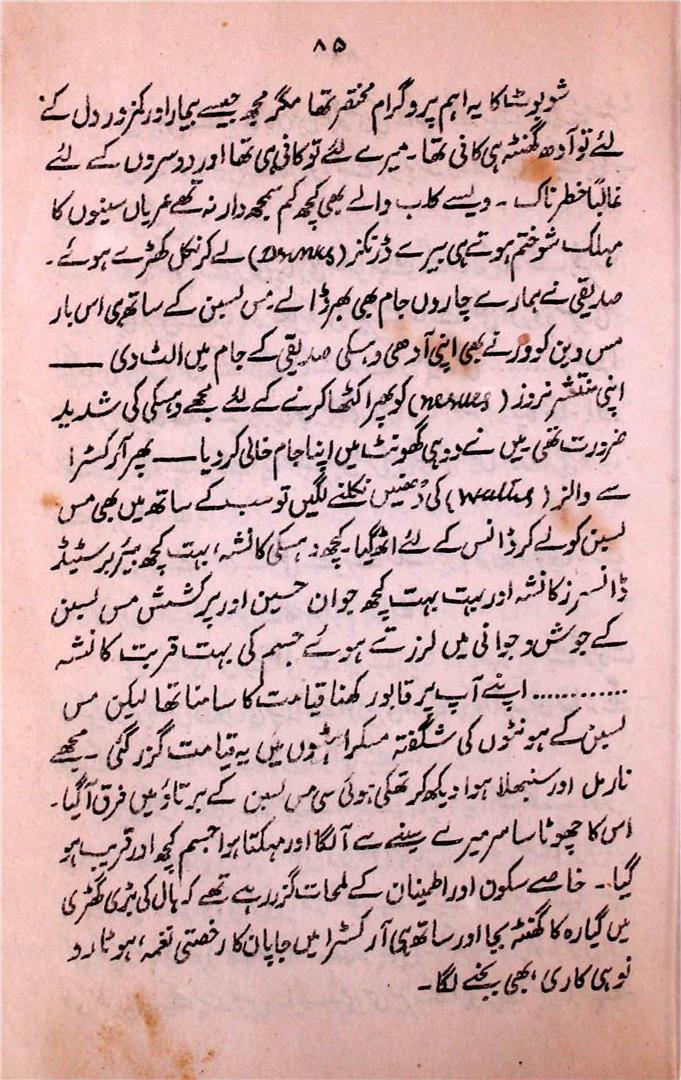 ۸۵
شوبوٹسا کا یہ اہم پروگرام مختصر تھا مگر مجھ جیسے بیمار اور کمزور دل کے
لئے تو آدھ گھنٹہ ہی کافی تھا۔ میرے لئے تو کافی ہی تھا اور دوسروں کے لئے
غالبًا خطرناک ۔ ویسے کلب والے بھی کچھ کم سمجھدار نہ تھے عریاں سینوں کا
مہلک شو ختم ہوتے ہی بیرے ڈرنکز (Drinks) لے کر نکل کھڑے ہوئے ۔
صدیقی نے ہمارے چاروں جام بھی بھر ڈالے۔ مس لسین کے ساتھ ہی اس بار
مس وین کوور نے بھی اپنی آدھی وہسکی صدیقی کے جام میں الٹ دی ——
اپنی منتشر نروز (nerves) کو پھر اکٹھا کرنے کے لئے مجھے وہسکی کی شدید
ضرورت تھی۔ میں نے دو ہی گھونٹ میں اپنا جام خالی کر دیا —— پھر آرکسٹرا
سے والز (Waltz) کی دُھنیں نکلنے لگیں تو سب کے ساتھ میں بھی مس
لسین کو لے کر ڈانس کے لئے اٹھ گیا۔ کچھ وہسکی کا نشہ، بہت کچھ بیئر بریسٹیڈ
ڈانسرز کا نشہ اور بہت بہت کچھ جوان حسین اور پرکشش مس لسین
کے جوش و جوانی میں لرزتے ہوئے جسم کی بہت قربت کا نشہ
............ اپنے آپ پر قابو رکھنا قیامت کا سامنا تھا لیکن مس
لسین کے ہونٹوں کی شگفتہ مسکراہٹوں میں یہ قیامت گزر گئی ۔ مجھے
نارمل اور سنبھلا ہوا دیکھ کر تھکی ہوئی سی مس لسین کے برتاؤ میں فرق آ گیا۔
اس کا چھوٹا سا سر میرے سینے سے آ لگا اور مہکتا ہوا جسم کچھ اور قریب ہو
گیا ۔ خاصے سکون اور اطمینان کے لمحات گزر رہے تھے کہ ہال کی بڑی گھڑی
میں گیارہ کا گھنٹہ بجا اور ساتھ ہی آرکسٹرا میں جاپان کا رخصتی نغمہ، ہوٹارو
نو ہی کاری، بھی بجنے لگا ۔